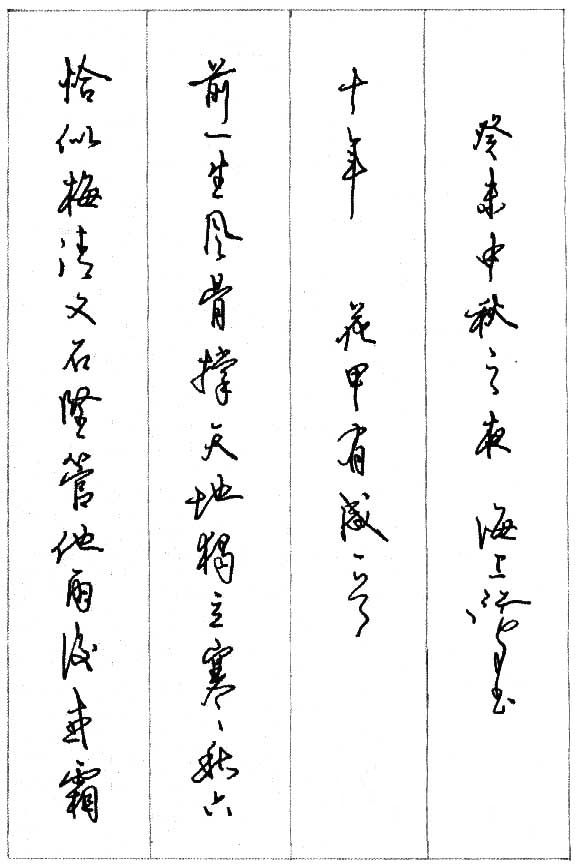 恰似梅清又石坚管他雨后或霜
前一生风骨撑天地独立寒秋六
十年 花甲有感
癸未中秋之夜 海上 书